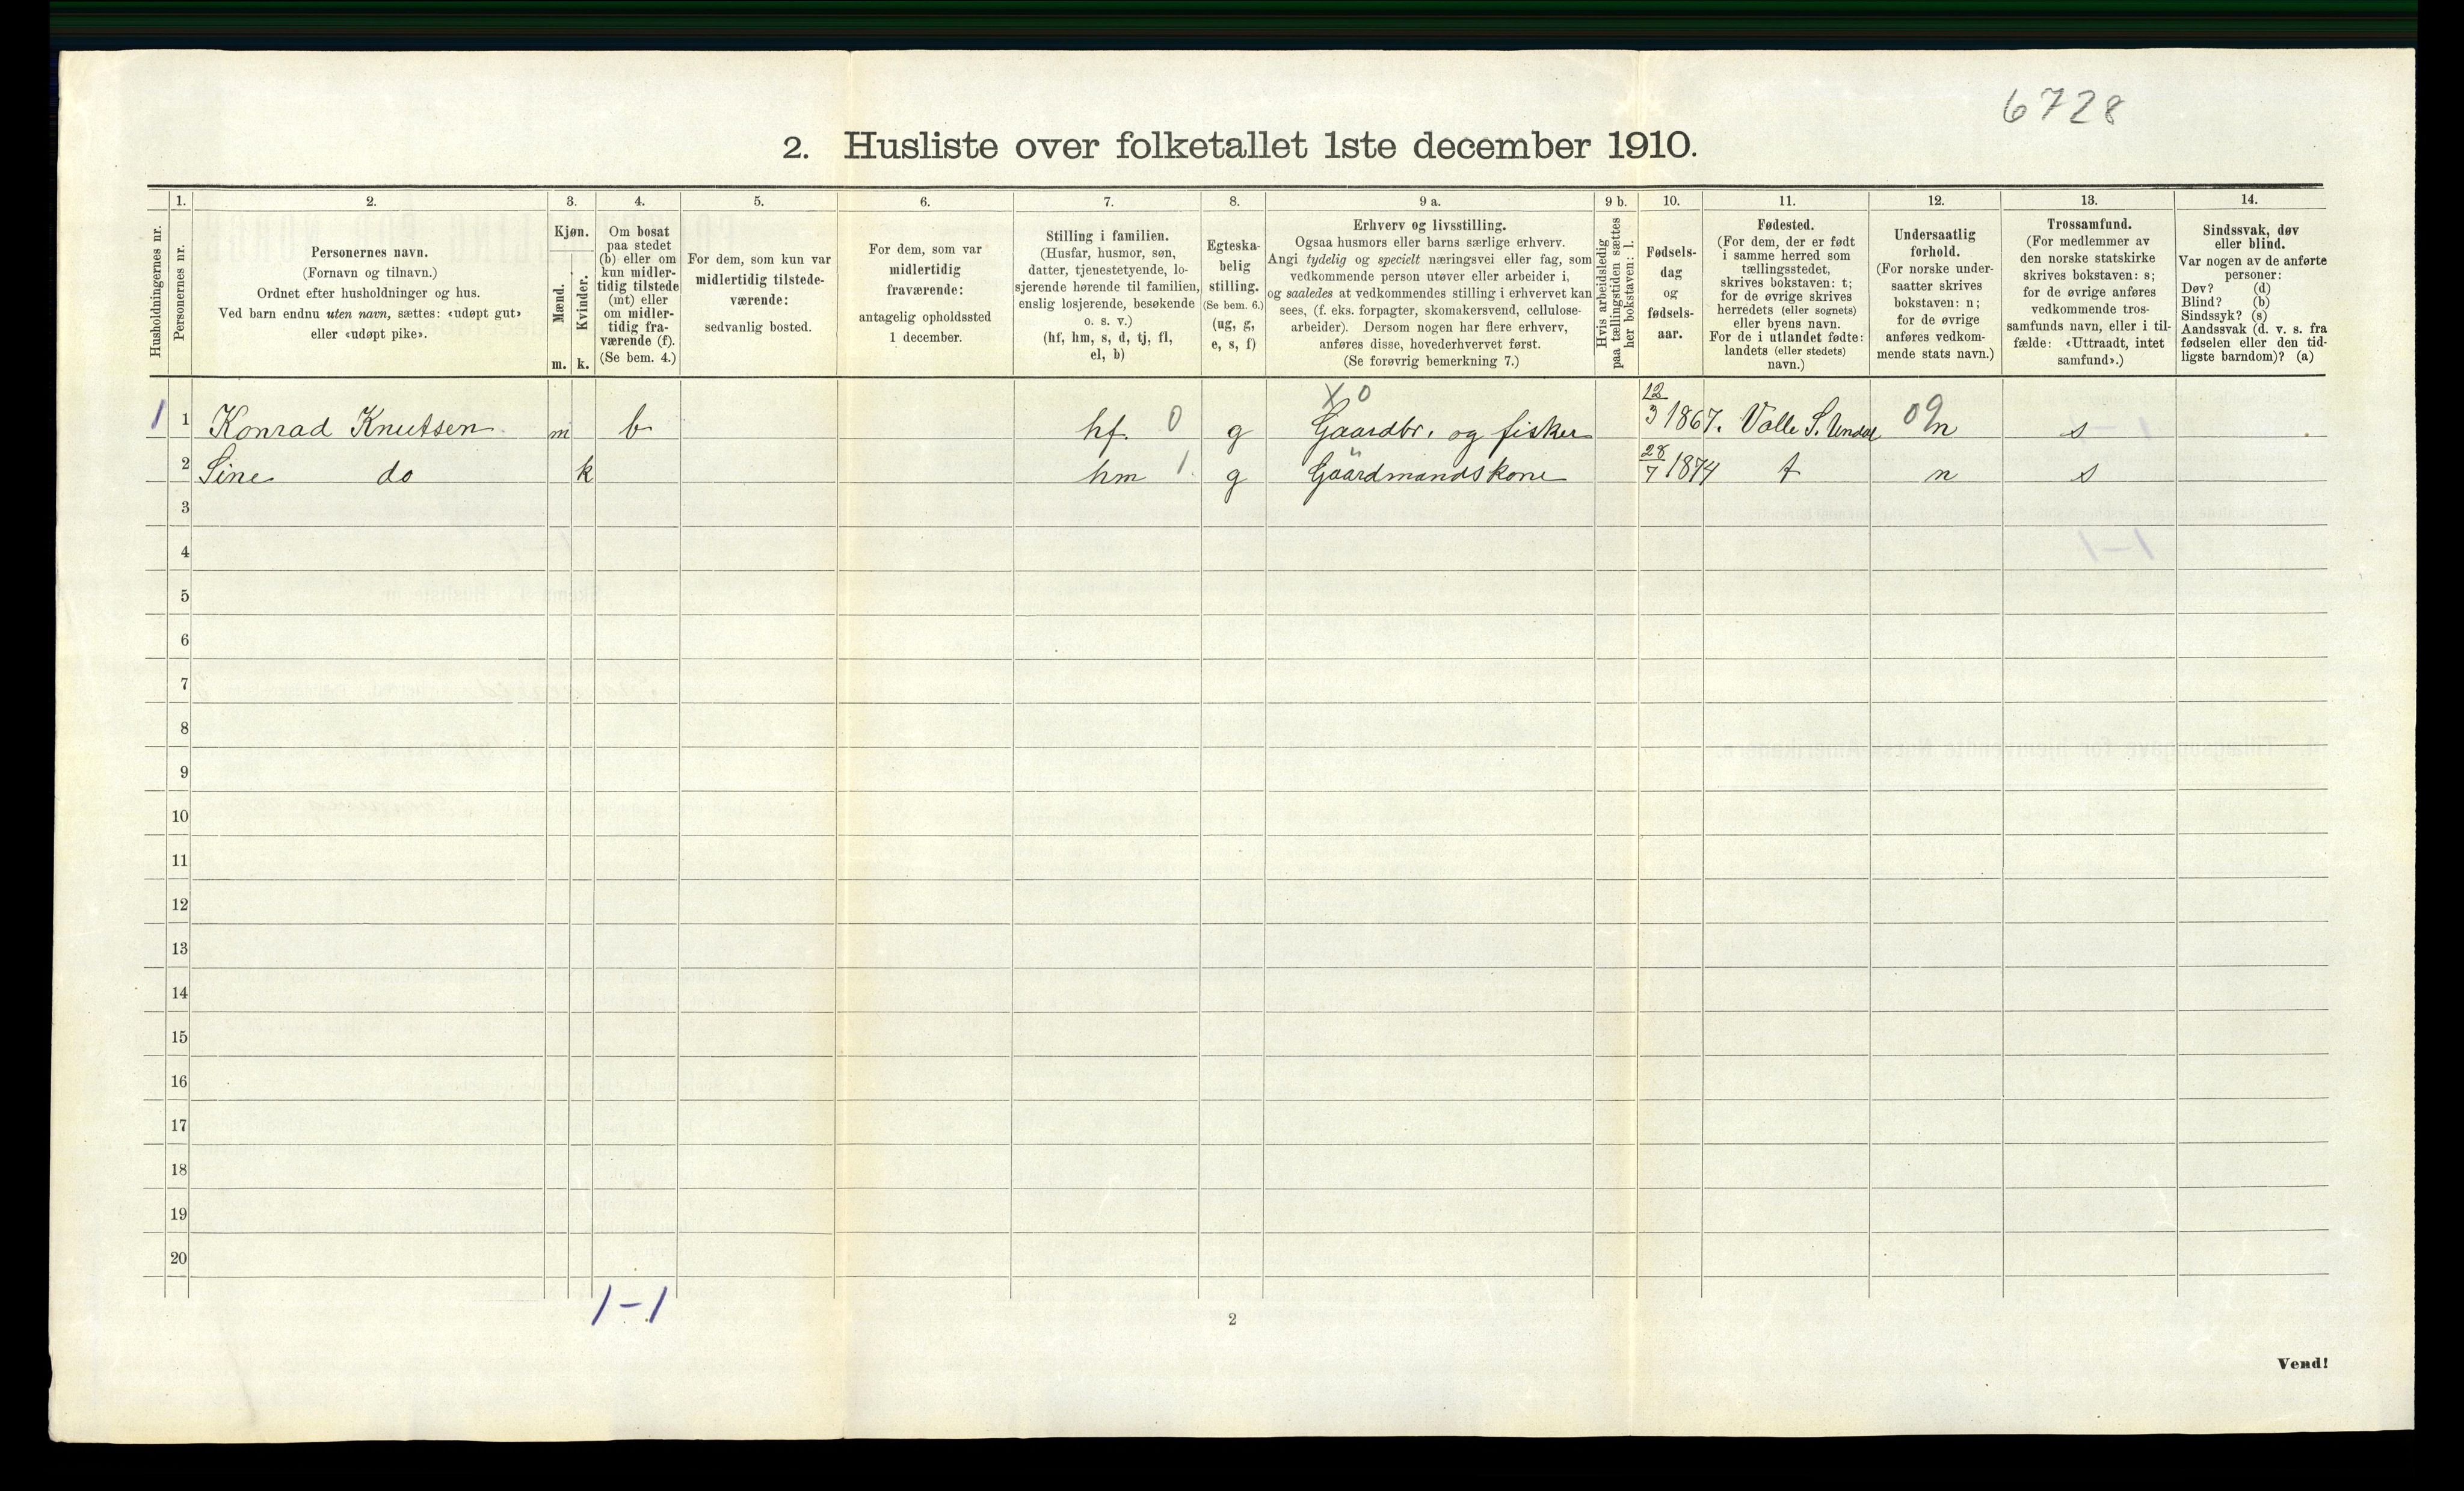 6728
2. Husliste over folketallet 1ste december 1910.
Husholdningernes nr.
1.
Personernes nr.
2.
Personernes navn.
(Fornavn og tilnavn.)
Ordnet efter husholdninger og hus.
Ved barn endnu uten navn, sættes: «udøpt gut»
eller «udøpt pike».
3.
Kjøn.
Mænd.
Kvinder.
m. k.
4.
Om bosat
paa stedet
(b) eller om
kun midler-
tidig tilstede
(mt) eller
om midler-
tidig fra-
værende (f).
(Se bem. 4.)
5.
For dem, som kun var
midlertidig tilstede-
værende:
sedvanlig bosted.
6.
For dem, som var
midlertidig
fraværende:
antagelig opholdssted
1 december.
7.
Stilling i familien.
(Husfar, husmor, søn,
datter, tjenestetyende, lo-
sjerende hørende til familien,
enslig losjerende, besøkende
o. s. v.)
(hf, hm, s, d, tj, fl,
el, b)
8.
Egteska-
belig
stilling.
(Se bem. 6.)
(ug, g,
e, s, f)
9 a.
Erhverv og livsstilling.
Ogsaa husmors eller barns særlige erhverv.
Angi tydelig og specielt næringsvei eller fag, som
vedkommende person utøver eller arbeider i,
og saaledes at vedkommendes stilling i erhvervet kan
sees, (f. eks. forpagter, skomakersvend, cellulose-
arbeider). Dersom nogen har flere erhverv,
anføres disse, hovederhvervet først.
(Se forøvrig bemerkning 7.)
9 b.
Hvis arbeidsledig
paa tællingstiden sættes
her bokstaven: l.
10.
Fødsels-
dag
og
fødsels-
aar.
11.
Fødested.
(For dem, der er født
i samme herred som
tællingsstedet,
skrives bokstaven: t;
for de øvrige skrives
herredets (eller sognets)
eller byens navn.
For de i utlandet fødte:
landets (eller stedets)
navn.)
12.
Undersaatlig
forhold.
(For norske under-
saatter skrives
bokstaven: n;
for de øvrige
anføres vedkom-
mende stats navn.)
13.
Trossamfund.
(For medlemmer av
den norske statskirke
skrives bokstaven: s;
for de øvrige anføres
vedkommende tros-
samfunds navn, eller i til-
fælde: «Uttraadt, intet
samfund».)
14.
Sindssvak, døv
eller blind.
Var nogen av de anførte
personer:
Døv? (d)
Blind? (b)
Sindssyk? (s)
Aandssvak (d. v. s. fra
fødselen eller den tid-
ligste barndom)? (a)
X 0
1 1 Konrad Knutsen m b hf. 0 g Gaardbr. og fisker 12/3 1867. Valle S. Undal 09 n s
2 Sine do k hm 1. g Gaardmandskone 28/7 1874 t n s
3
4
5
6
7
8
9
10
11
12
13
14
15
16
17
18
19
20
1-1
2
Vend!